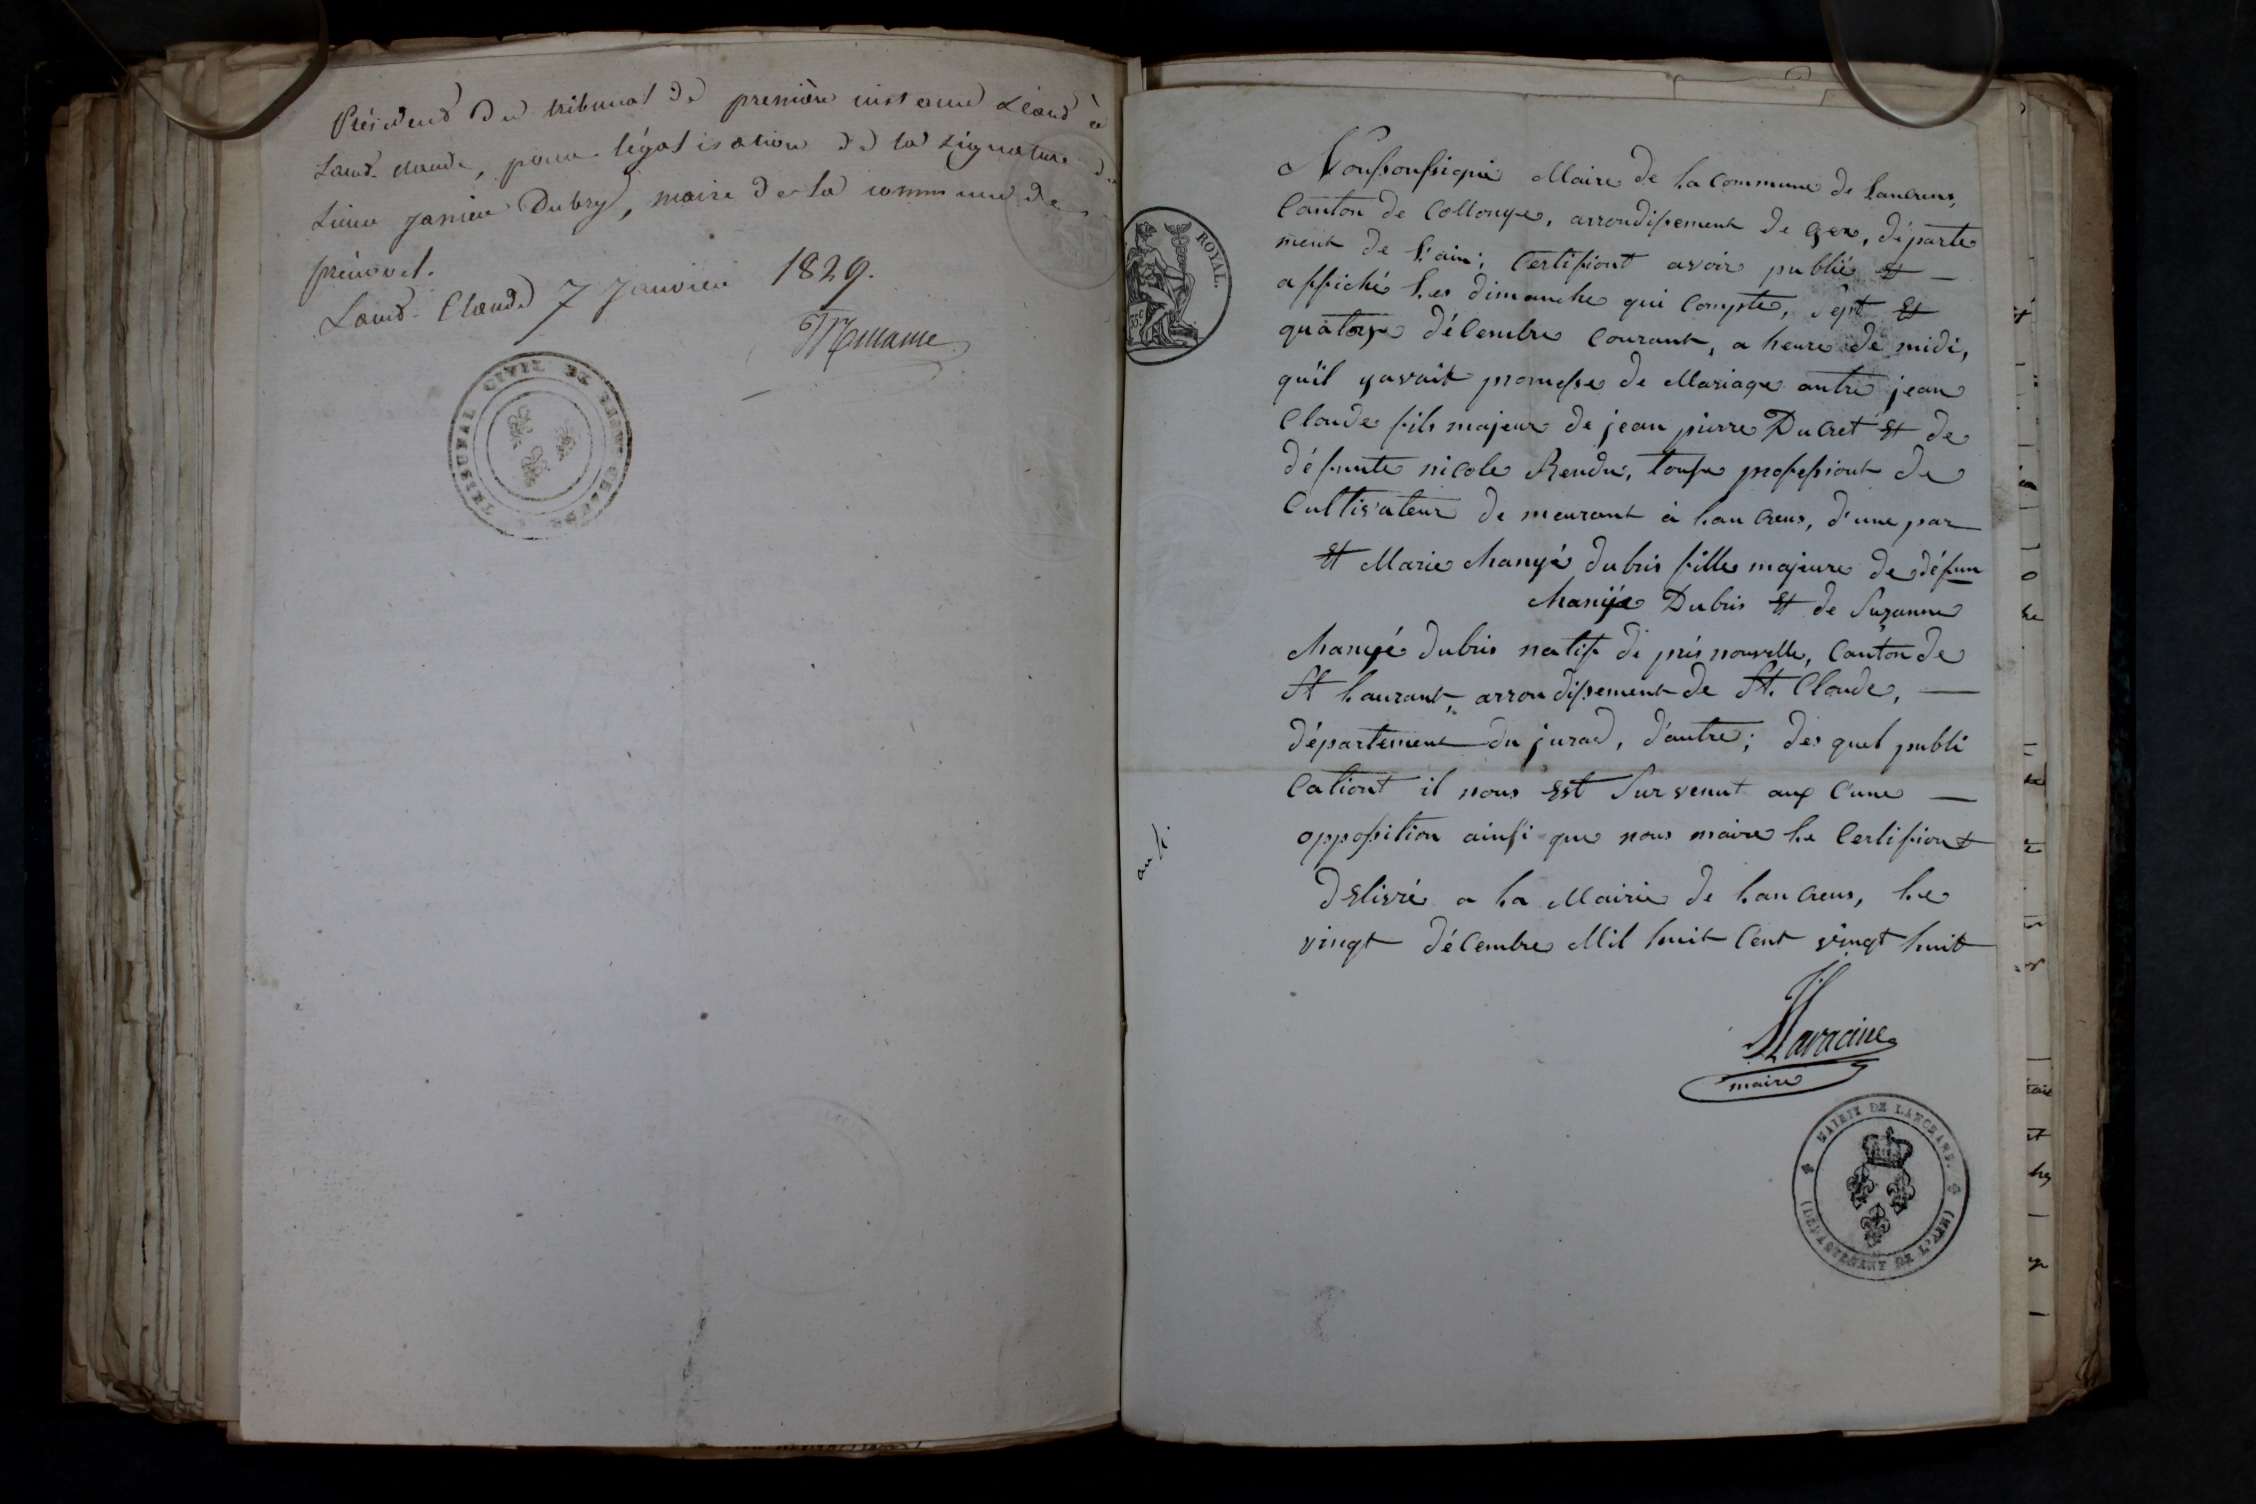 Président du tribunal de première instance séant à
Saint-claude, pour légalisation de la signature du
Sieur Janier Dubry, maire de la commune de
prénovel.
Saint-Claude 7 Janvier 1829.
TRIBUNAL CIVIL DE SAINT CLAUDE
ROYAL.
Nousoussigné Maire de la Commune de Lancrens,
Canton de Collonge, arrondissement de gex, départe
ment de l'ain; Certifiont avoir publié et
affiché les dimanche qui Compte, Sept et
quatorze décembre Courant, a heure de midi,
qu'il yavait promesse de Mariage antre jean
Claude fils majeur de jean pierre Ducret et de
défunte nicole Rendu, touse professiont de
Cultivateur de meurant à lancrens, d'une par
et Marie Changé dubris fille majeure de défun
Changé Dubris et de Suzanne
Changé dubris natife de prés nouvelle, Canton de
St laurant, arrondissement de St. Cloude,
département du jurad, d'autre; des quel publi
Cationt il nous est Survenut aux Cune
opposition ainsi que nous maire le Certifiont
délivré a la Mairie de lancrens, le
vingt décembre Mil huit Cent vingt huit
maire
MAIRIE DE LANCRANS.
(DÉPARTEMENT DE L'AIN)